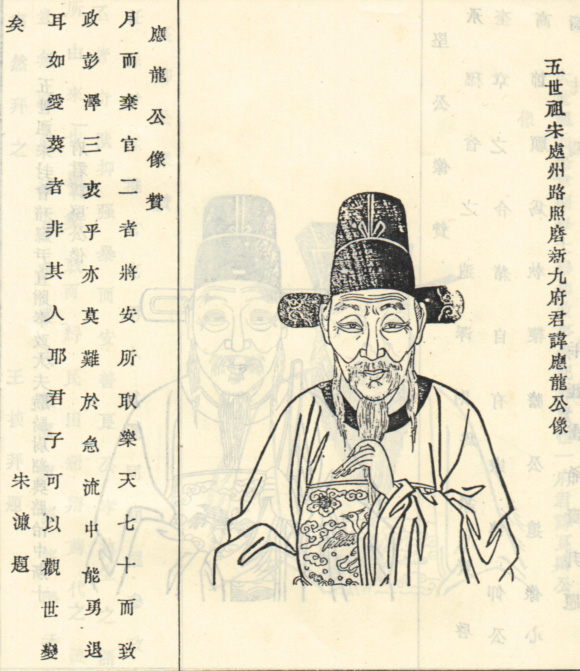 五世祖朱處州路照磨新九府君諱應龍公像
應龍公像贊
月而棄官二者將安所取樂天七十而致
政彭澤三衷乎亦莫難於急流中能勇退
耳如愛葵者非其人耶君子可以觀世變
矣 朱濂題